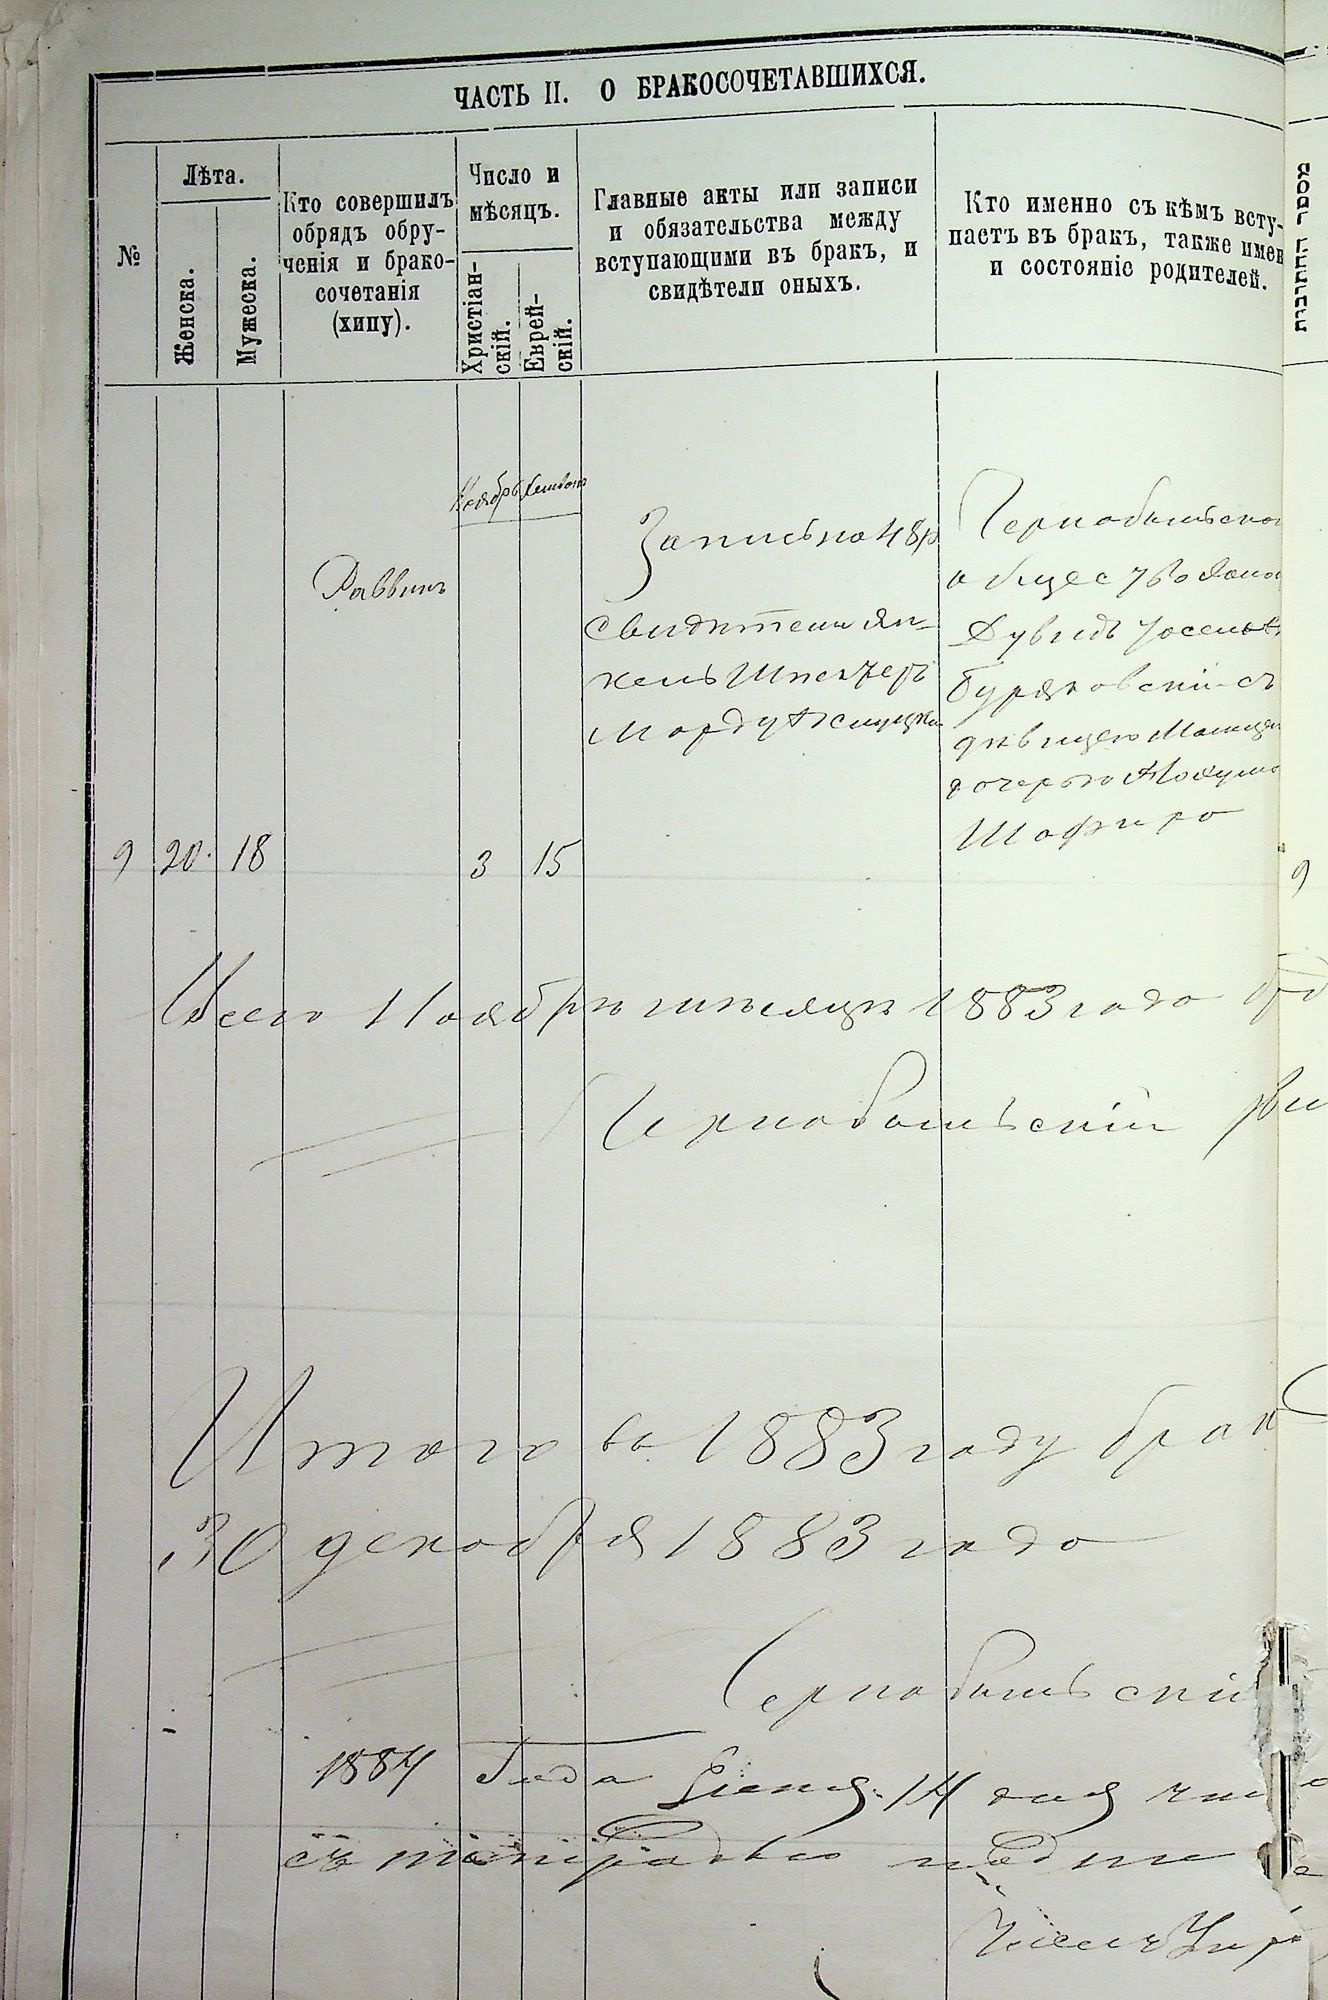 ЧАСТЬ II. О БРАКОСОЧЕТАВШИХСЯ.
№
Лѣта.
Женска.
Мужеска.
Кто совершилъ
обрядъ обру-
ченія и брако-
сочетанія
(хипу).
Число и
мѣсяцъ.
Христіан-
скій.
Еврей-
скій.
Главные акты или записи
и обязательства между
вступающими въ бракъ, и
свидѣтели оныхъ.
Кто именно съ кѣмъ всту-
паетъ въ бракъ, также имен
и состояніе родителей.
9
20
18
Раввинъ
Ноябрь
3
Хешвонъ
15
Запись на 48 р
свидѣтели Ян-
кель Шпекторъ
Морду
Чернобыльско
общества
Дувидъ Іосе
Буряковскій съ
дѣвицею
дочерью
Шафиро
9
Всего Ноября мѣсяца 1883 года
Чернобыльскій
Итого въ 1883 году брак
30 декабря 1883 года
Чернобыльскій
1884 Года 14 дня
съ тетрадью